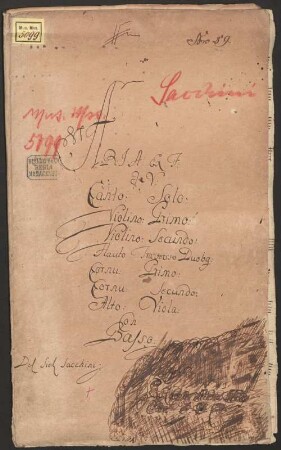 Mus. Mss.
5099
Nro 59.
Sacchini
Mus. Mss.
5099
ARIA ex F.
Canto Solo.
Violino Primo.
Violino Secundo.
Flauto Duobg
Cornu Primo.
Cornu Secundo.
Alto Viola.
Con
Basso.
Del Sigl Sacchini